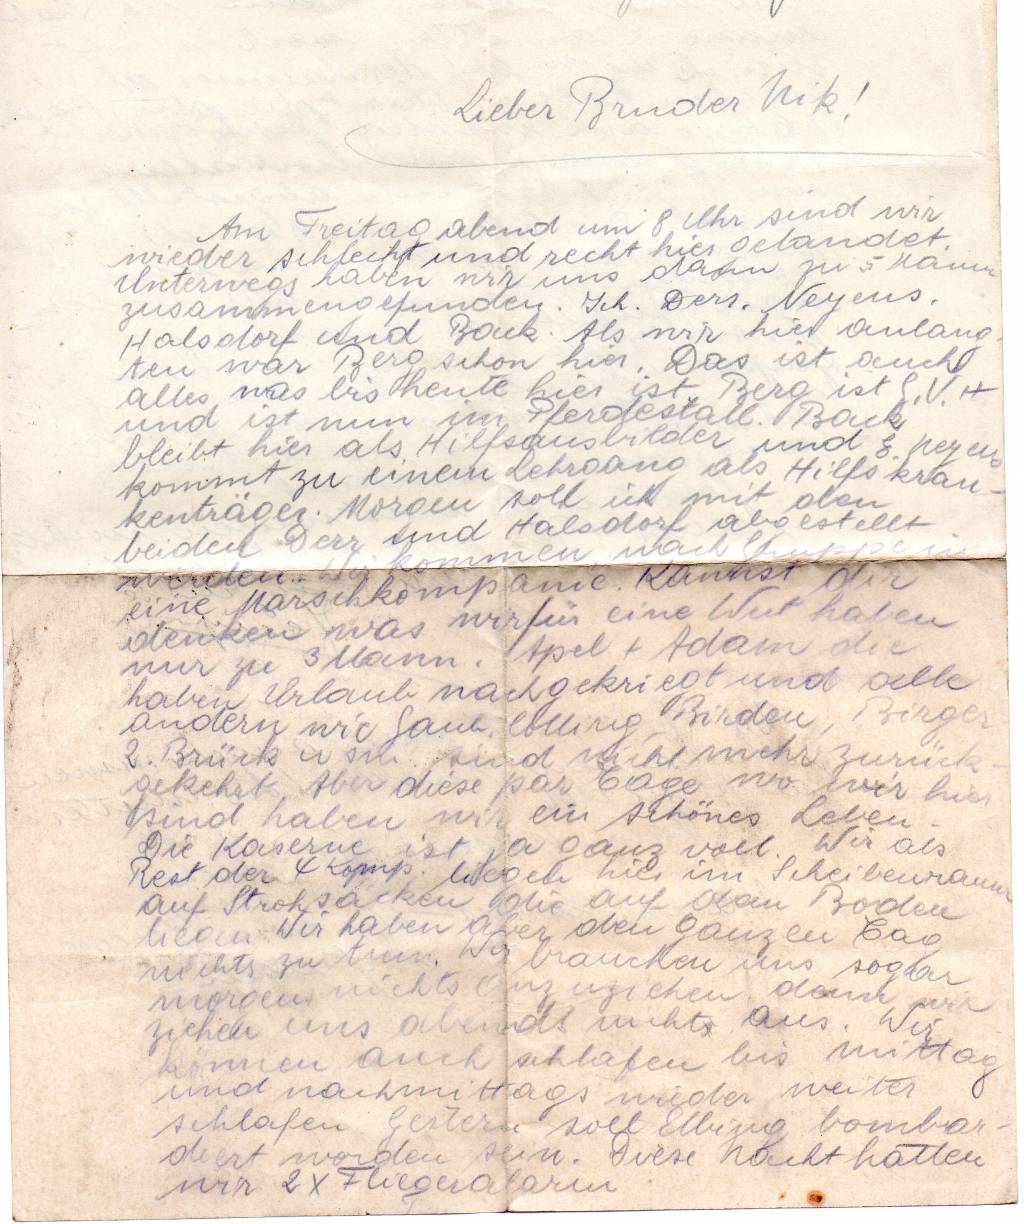 Lieber Bruder Nik!
Am Freitag abend um 8 Uhr sind wir
wieder schlecht und recht hier gelandet.
Unterwegs haben wir uns dann zu 5 Mann
zusammengefunden. Ich. Derr. Neyens.
Halsdorf und Back. Als wir hier anlang-
ten war Berg schon hier. Das ist auch
alles was bis heute hier ist. Berg ist g.V.H
und ist nun im Pferdestall. Back
bleibt hier als Hilfsausbilder und E. Neyens
kommt zu einem Lehrgang als Hilfskran-
kenträger. Morgen soll ich mit den
beiden Derr und Halsdorf abgestellt
werden. Wir kommen nach in
eine Marschkompanie. Kannst dir
denken was wir für eine Wut haben
nur zu 3 Mann. Apel + Adam die
haben Urlaub nachgekriegt und alle
andern wie Gaub, Colling, Birden, Birger
2. Brück u sw. sind nicht mehr zurück-
gekehrt. Aber diese par Tage wo wir hier
sind haben wir ein schönes Leben.
Die Kaserne ist ja ganz voll. Wir als
Rest der 4 Komp. liegen hier im Scheibenraum
auf Strohsäcken die auf dem Boden
liegen. Wir haben aber den ganzen Tag
nichts zu tun. Wir brauchen uns sogar
morgens nichts anzuziehen denn wir
ziehen uns abends nichts aus. Wir
können auch schlafen bis mittag
und nachmittags wieder weiter
schlafen. Gestern soll Elbing bombar-
diert worden sein. Diese Nacht hatten
wir 2x Fliegeralarm.